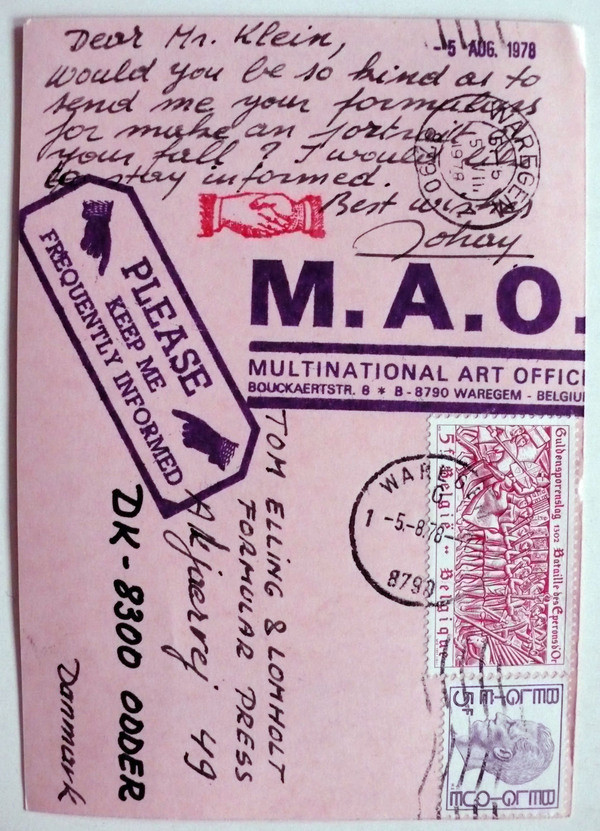 Dear Mr. Klein,
would you be so kind as to
send me your formulars
for make an portrait
your fall? I would
to stay informed.
Best wishes
Johay
- 5 AUG. 1978
WAREGEM
1978
PLEASE
KEEP ME
FREQUENTLY INFORMED
M.A.O.
MULTINATIONAL ART OFFIC
BOUCKAERTSTR. 8 * B - 8790 WAREGEM - BELGIU
TOM ELLING & LOMHOLT
FORMULAR PRESS
Akjaerrej 49
DK-8300 ODDER
Danmark
1 -5.-8.78-
8790
Guldensporenslag 1302 Bataille des Eperons d'Or
5F België Belgique
BELGIE 5F
BELGIQUE